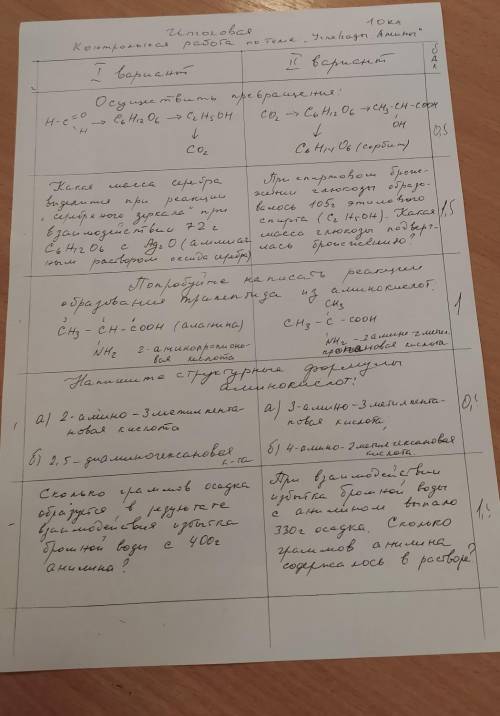 Итоговая 10 кл
Контрольная работа по теме „Углеводы Амины"
I вариант
II вариант
Осуществить превращения:
H-C=O
H
→ C6H12O6 → C2H5OH
↓
CO2
CO2 → C6H12O6 → CH3-CH-COOH
OH
↓
C6H14O6 (сорбит)
0,5
Какая масса серебра
выделится при реакции
„серебряного зеркала" при
взаимодействии 72 г
C6H12O6 с Ag2O (аммиач
ным раствором оксида серебра)
При спиртовом броже-
жении глюкозы образо-
валось 105г этилового
спирта (C2H5OH). Какая
масса глюкозы подверг-
лась брожению?
1,5
Попробуйте написать реакции
образования трипептида из аминокислот.
CH3 - CH - COOH (аланина)
NH2 2-аминопропионо-
вая кислота
CH3
CH3 - C - COOH
NH2 - 2 амино-2 метил
пропановая кислота
1
Напишите структурные формулы
аминокислот:
а) 2-амино-3 метилпента-
новая кислота
б) 2,5-диаминогексановая
к-та
а) 3-амино-3 метилпента-
новая кислота,
б) 4-амино-2 метилгексановая
кислота.
Сколько граммов осадка
образуется в результате
взаимодействия избытка
бромной воды с 400г
анилина?
При взаимодействии
избытка бромной воды
с анилином выпало
330г осадка. Сколько
граммов анилина
содержалось в растворе?